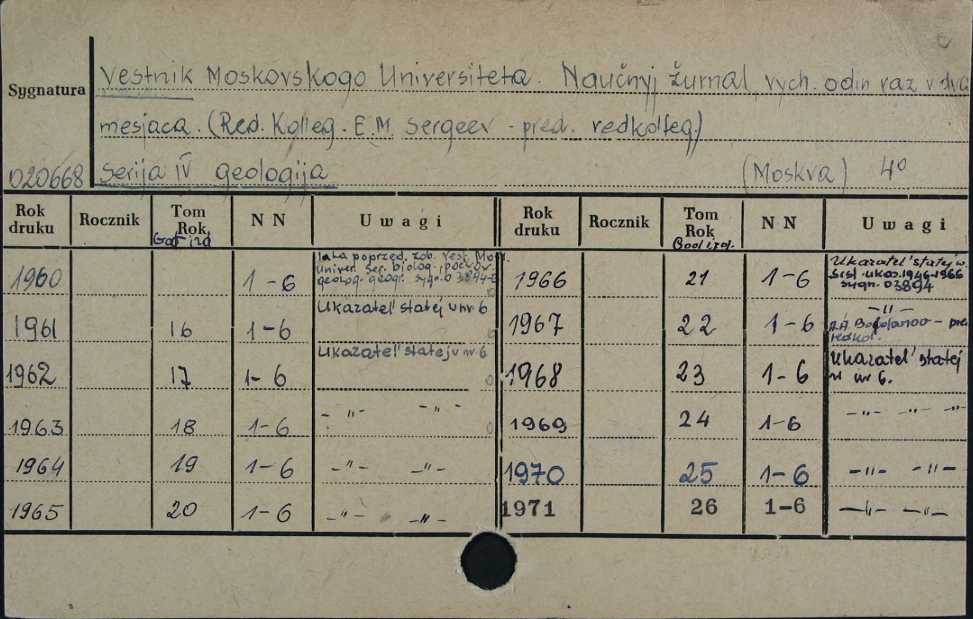 Vestnik Moskovskogo Universiteta. Naučnyj žurnal, vych. odin raz v dva
Sygnatura
mesjaca. (Red. Kolleg. E.M. Sergeev - pred. redkolleg.)
020668 Serija IV geologija (Moskva) 4°
Rok druku Rocznik Tom Rok N N Uwagi Rok druku Rocznik Tom Rok N N Uwagi
God izd. God izd.
1960 1-6 poprzed. zob. Vest. Mosk. Univer. Ser. biolog., počv., geolog. geogr. sygn. 03894 1966 21 1-6 Ukazatel' statej w. sist. ukaz. 1946-1966 sygn. 03894
1961 16 1-6 Ukazatel' statej v nr 6 1967 22 1-6 -"- Bogdanov - pred. redkol.
1962 17 1-6 Ukazatel' statej v nr 6 1968 23 1-6 Ukazatel' statej v nr 6.
1963 18 1-6 -"- -"- 1969 24 1-6 -"- -"- -"-
1964 19 1-6 -"- -"- 1970 25 1-6 -"- -"-
1965 20 1-6 -"- -"- 1971 26 1-6 -"- -"-